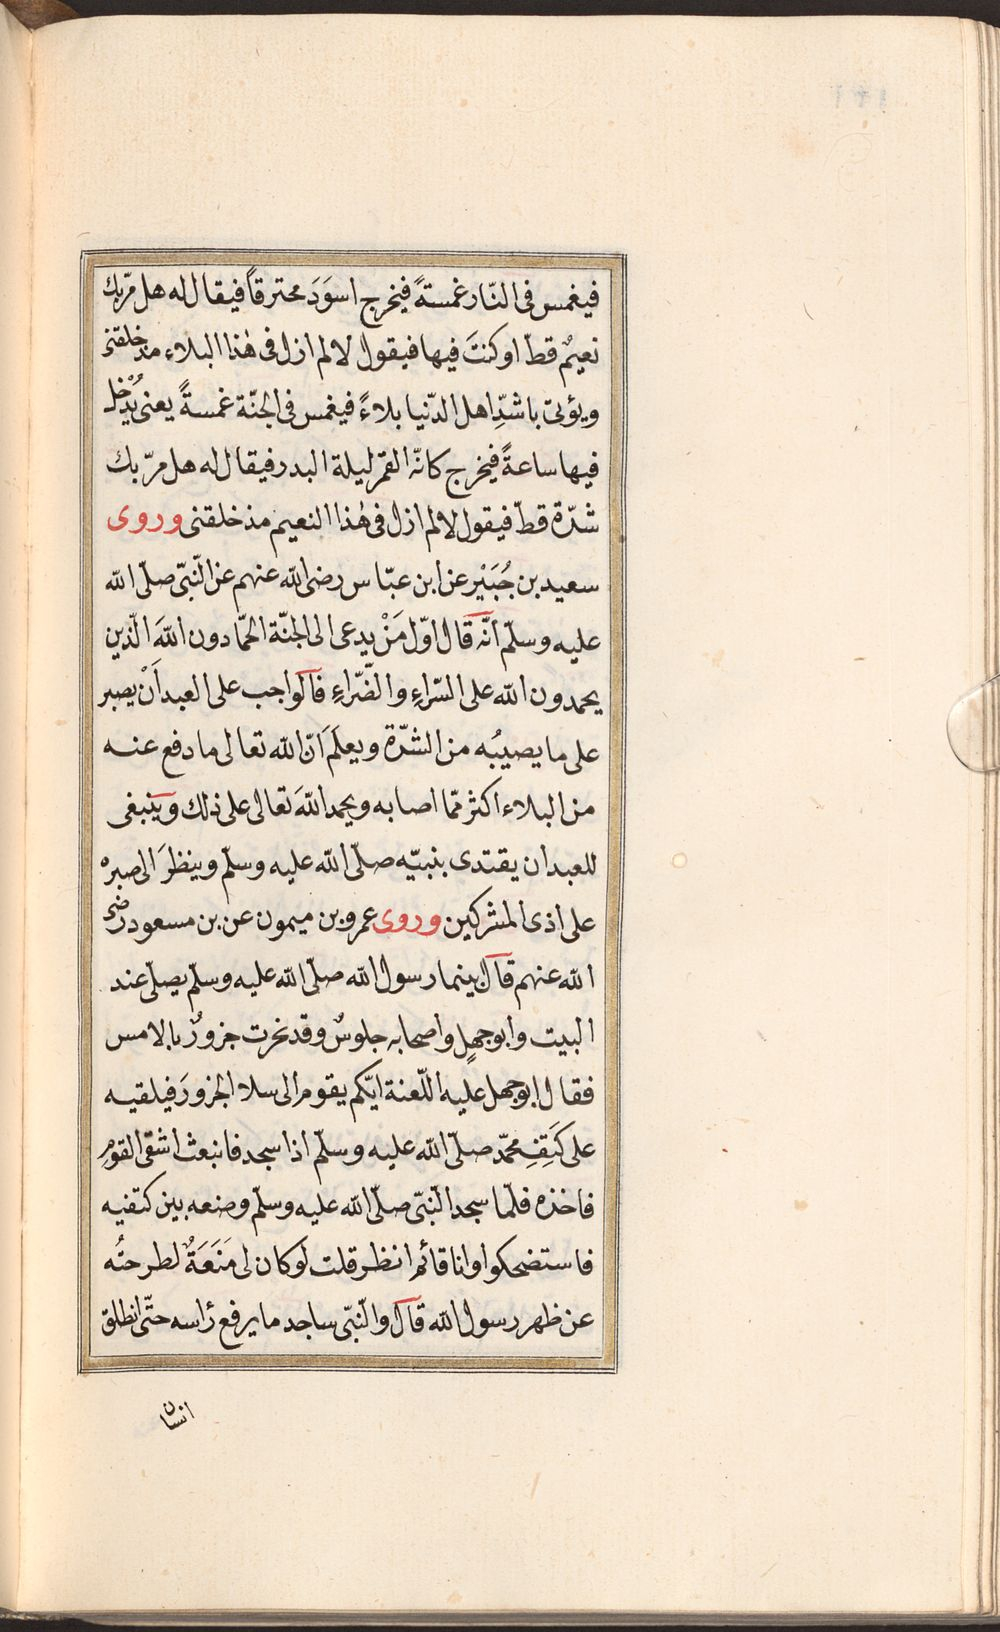 فيغمس فى النّار غمسةً فيخرج اسوَدَ محترقاً فيقال له هل مرّ بك
نعيمٌ قطّ او كنتَ فيها فيقول لا لم ازل فى هٰذا البلاء مذ خلقتنى
ويؤتى باشدِّ اهل الدّنيا بلاءً فيغمس فى الجنّة غمسةً يعنى يُدْخل
فيها ساعةً فيخرج كانّه القمر ليلة البدر فيقال له هل مرّ بك
شدّة قطّ فيقول لا لم ازل فى هٰذا النعيم مذ خلقتنى وروى
سعيد بن جُبَيْر عن ابن عبّاس رضى الله عنهم عن النّبىّ صلّى الله
عليه وسلّم انّه قال اوّل مَنْ يدعى الى الجنّة الحمّادون اللهَ الّذين
يحمدون الله على السّراءِ والضّراءِ فالواجب على العبد اَنْ يصبر
على ما يصيبُه من الشدّة ويعلَم اَنّ الله تعالى ما دفع عنه
من البلاء اكثر ممّا اصابه ويحمد اللهَ تعالى على ذلك وينبغى
للعبد ان يقتدى بنبيّه صلّى الله عليه وسلّم وينظرَ الى صبره
على اذى المشركين وروى عمرو بن ميمون عن بن مسعود رضى
الله عنهم قال بينما رسول الله صلّى الله عليه وسلّم يصلّى عند
البيت وابو جهلٍ واصحابه جلوسٌ وقد نحرت جزورٌ بالامس
فقال ابو جهل عليه اللّعنة ايّكم يقوم الى سلا الجزورَ فيلقيه
على كَتِفِ محمّد صلّى الله عليه وسلّم اذا سجد فانبعث اشقى القومِ
فاخذه فلمّا سجد النّبىّ صلّى الله عليه وسلّم وضعه بين كتفيه
فاستضحكوا وانا قائم انظر قلت لو كان لى مَنَعَةٌ لطرحتُه
عن ظهر رسول الله قال والنّبىّ ساجد ما يرفع رٔاسه حتّى انطلق
انسان